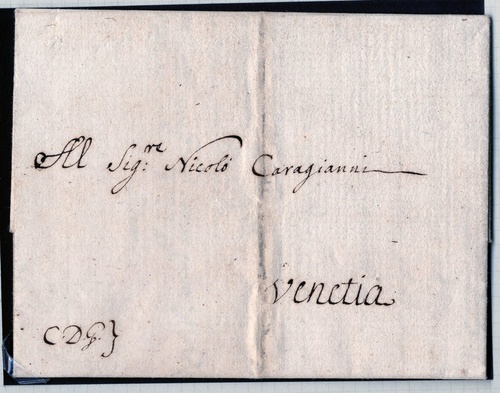 Al Sig:re Nicolò Caragianni
Venetia
C.D.G.}